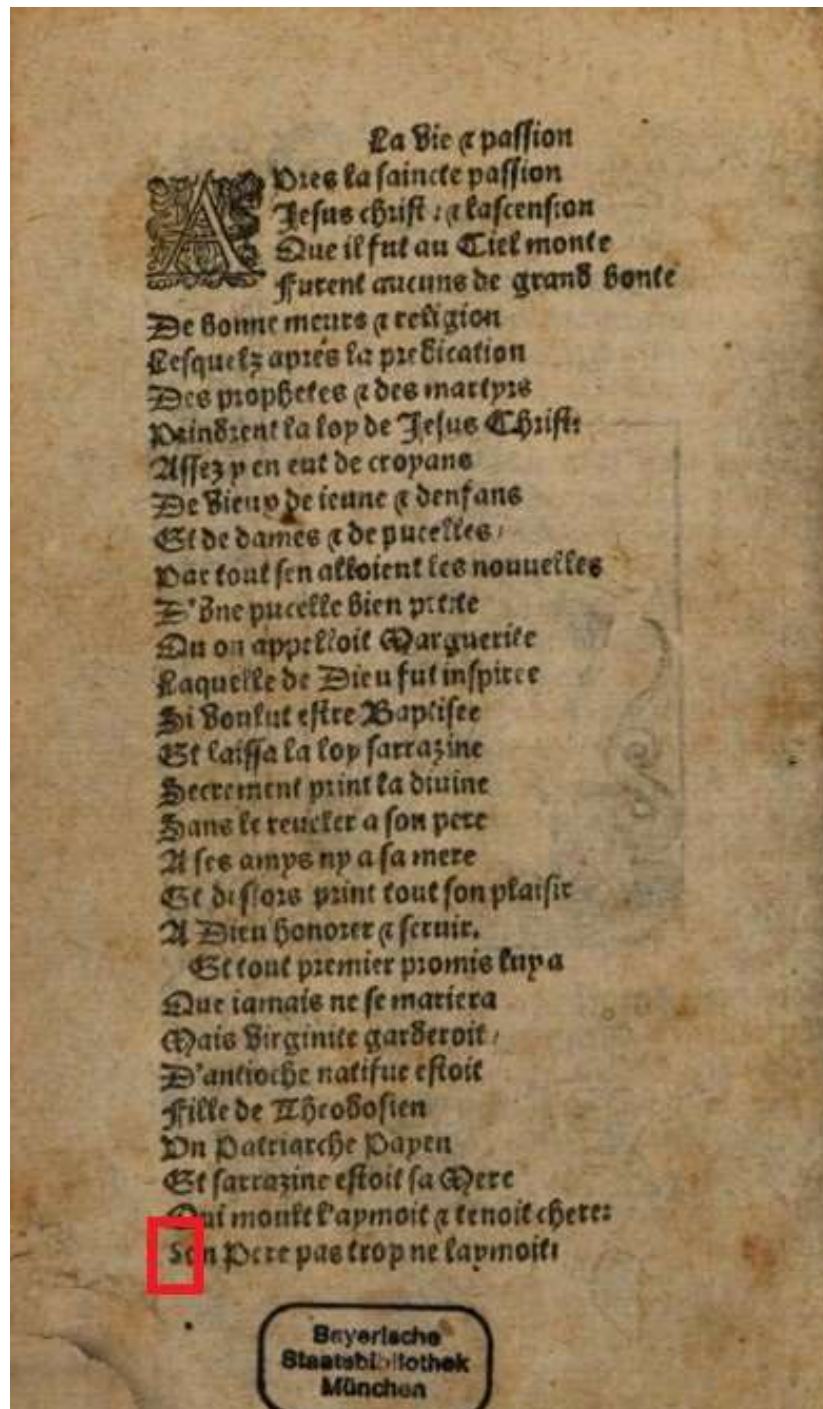 La vie & passion
APres la saincte passion
Jesus christ : & lascension
Que il fut au Ciel monte
Furent aucuns de grand bonte
De bonne meurs & religion
Lesquelz aprés la predication
Des prophetes & des martyrs
Prindrent la loy de Jesus Christ:
Assez y en eut de croyans
De vieux de ieune & denfans
Et de dames & de pucelles /
Par tout sen alloient les nouuelles
D'vne pucelle bien petite
Qu on appelloit Marguerite
Laquelle de Dieu fut inspiree
Si voulut estre Baptisee
Et laissa la loy sarrazine
Secrement print la diuine
Sans le reueler a son pere
A ses amys ny a sa mere
Et deslors print tout son plaisir
A Dieu honorer & seruir.
Et tout premier promis luy a
Que iamais ne se mariera
Mais virginite garderoit /
D'antioche natifue estoit
Fille de Theodosien
Vn Patriarche Payen
Et sarrazine estoit sa Mere
Qui moult l'aymoit & tenoit chere:
Son Pere pas trop ne laymoit:
Bayerische
Staatsbibliothek
München